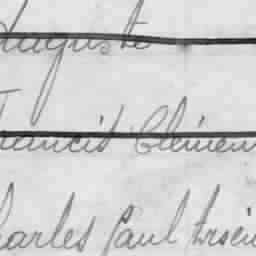 Auguste
Francis Clémen
harles Paul Arsèn